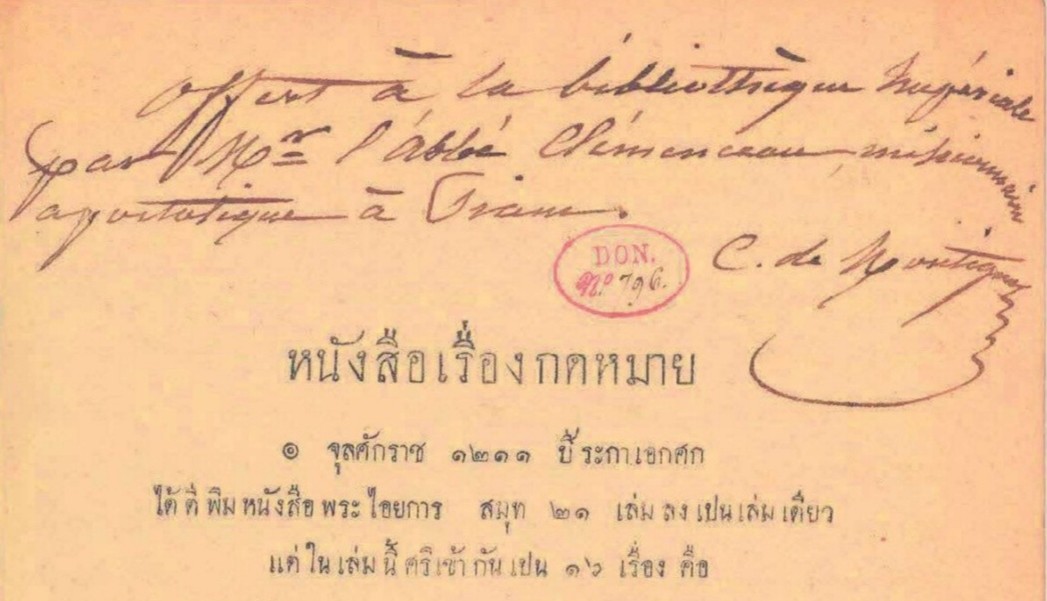 Offert à la bibliothèque Impériale
par Mr l'Abbé Clémenceau, missionnaire
apostolique à Siam.
C. de Montigny
DON.
No 796.
หนังสือเรื่องกดหมาย
๏ จุลศักราช ๑๒๑๑ ปีระกาเอกศก
ได้ตีพิมหนังสือพระไอยการ สมุท ๒๑ เล่ม ลงเปนเล่มเดียว
แต่ในเล่มนี้ ศริเข้ากันเปน ๑๖ เรื่อง คือ